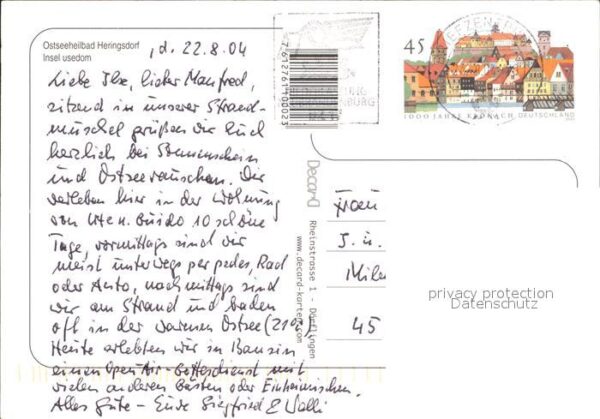 Ostseeheilbad Heringsdorf
Insel usedom
, d. 22.8.04
Liebe Ilse, lieber Manfred,
sitzend in unserer Strand-
muschel grüßen wir Euch
herzlich bei Sonnenschein
und Ostseerauschen. Wir
verleben hier in der Wohnung
von Ute u. Guido 10 schöne
Tage, vormittags sind wir
meist unterwegs per pedes, Rad
oder Auto, nachmittags sind
wir am Strand und baden
oft in der warmen Ostsee (21°).
Heute erlebten wir in Bansin
einen Open Air-Gottesdienst mit
vielen anderen Gästen oder Einheimischen.
Alles Gute - Eure Siegfried & Walli
7612761100023
Decard
Rheinstrasse 1 -
www.decard-karten.com
45
1000 JAHRE KRONACH DEUTSCHLAND
Frau
J. u.
45
privacy protection
Datenschutz